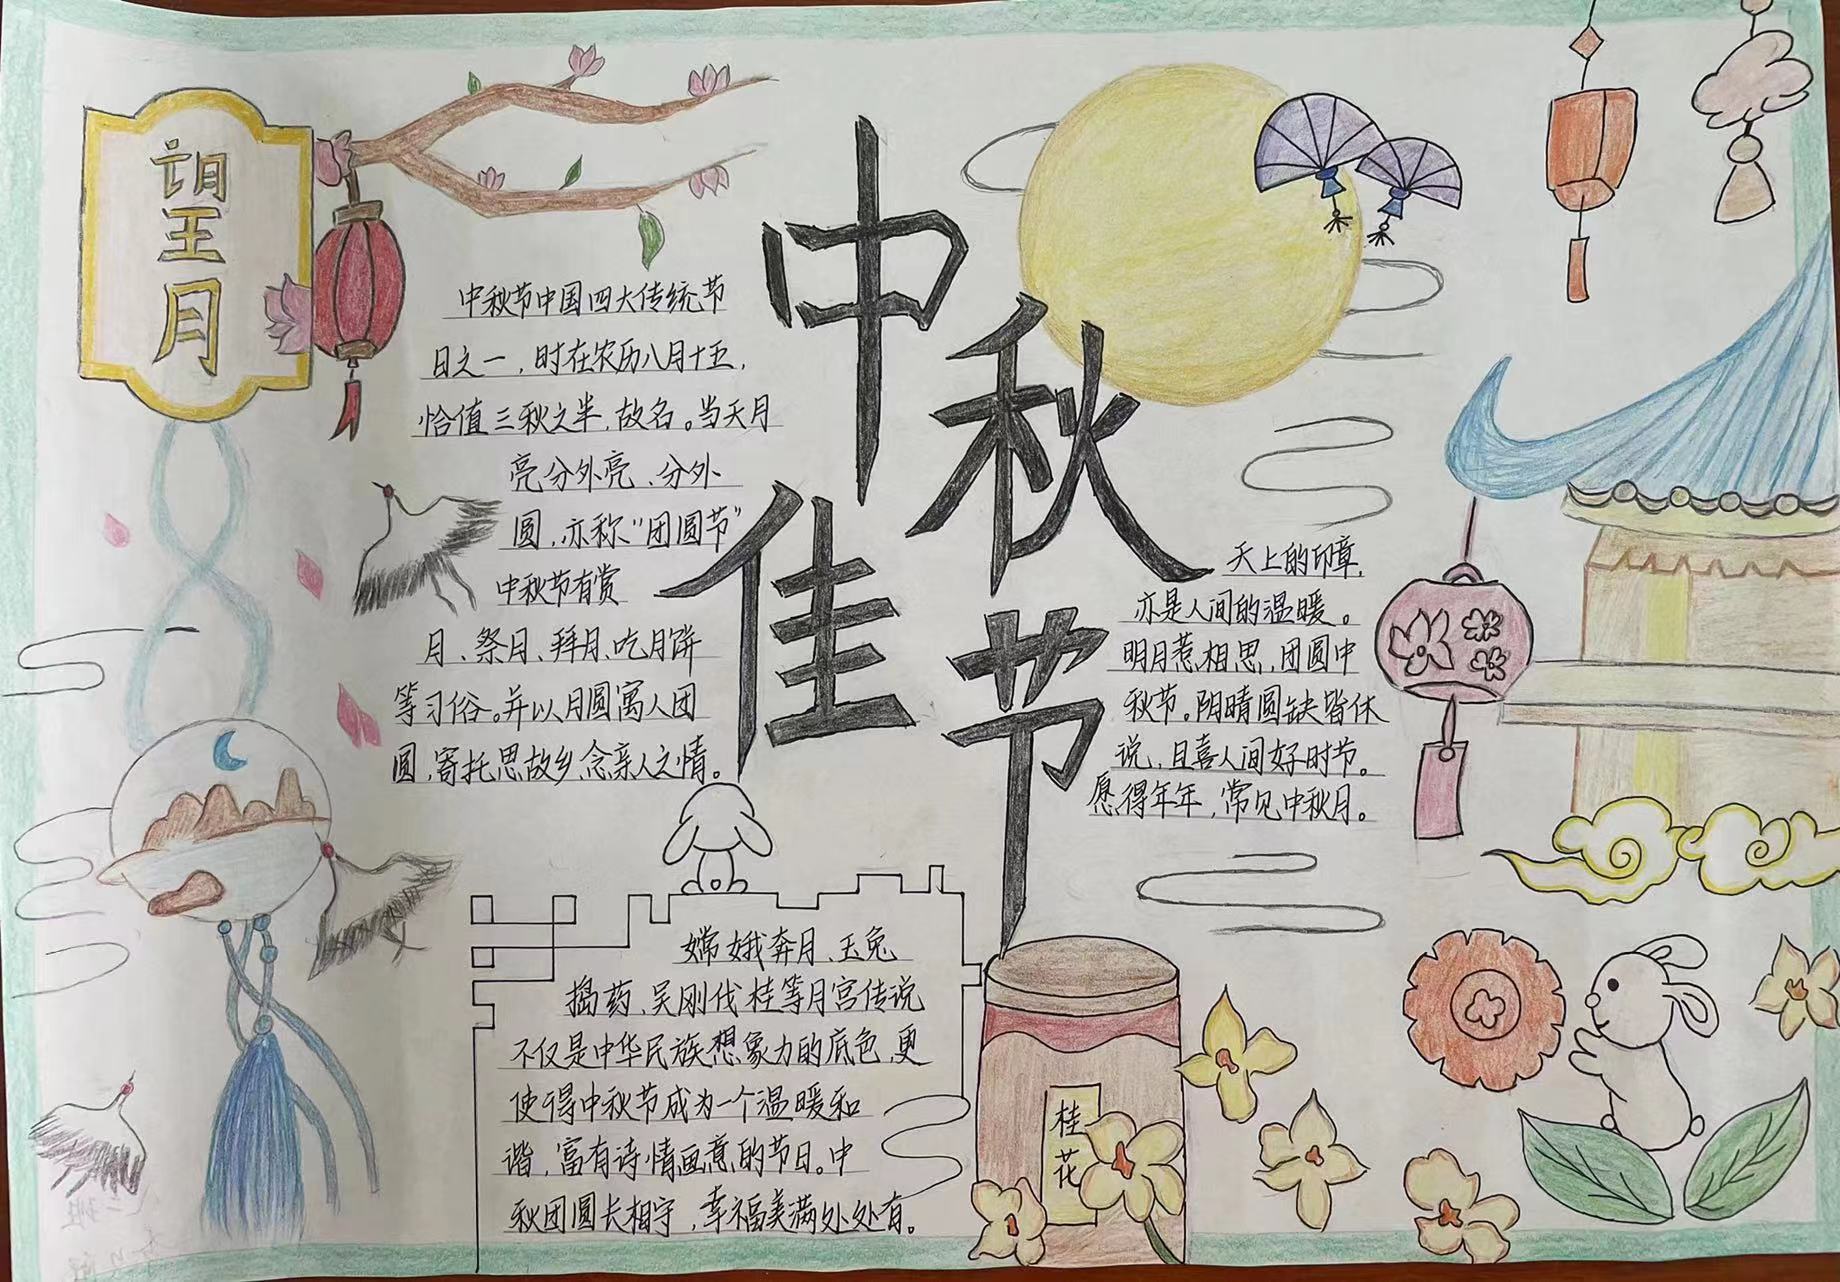 望
月
中秋佳节
中秋节中国四大传统节
日之一，时在农历八月十五，
恰值三秋之半，故名。当天月
亮分外亮、分外
圆，亦称“团圆节”
中秋节有赏
月、祭月、拜月、吃月饼
等习俗。并以月圆寓人团
圆，寄托思故乡，念亲人之情。
天上的印章，
亦是人间的温暖。
明月惹相思，团圆中
秋节。阴晴圆缺皆休
说，且喜人间好时节。
愿得年年，常见中秋月。
嫦娥奔月、玉兔
捣药、吴刚伐桂等月宫传说
不仅是中华民族想象力的底色，更
使得中秋节成为一个温暖和
谐，富有诗情画意的节日。中
秋团圆长相守，幸福美满处处有。
桂
花